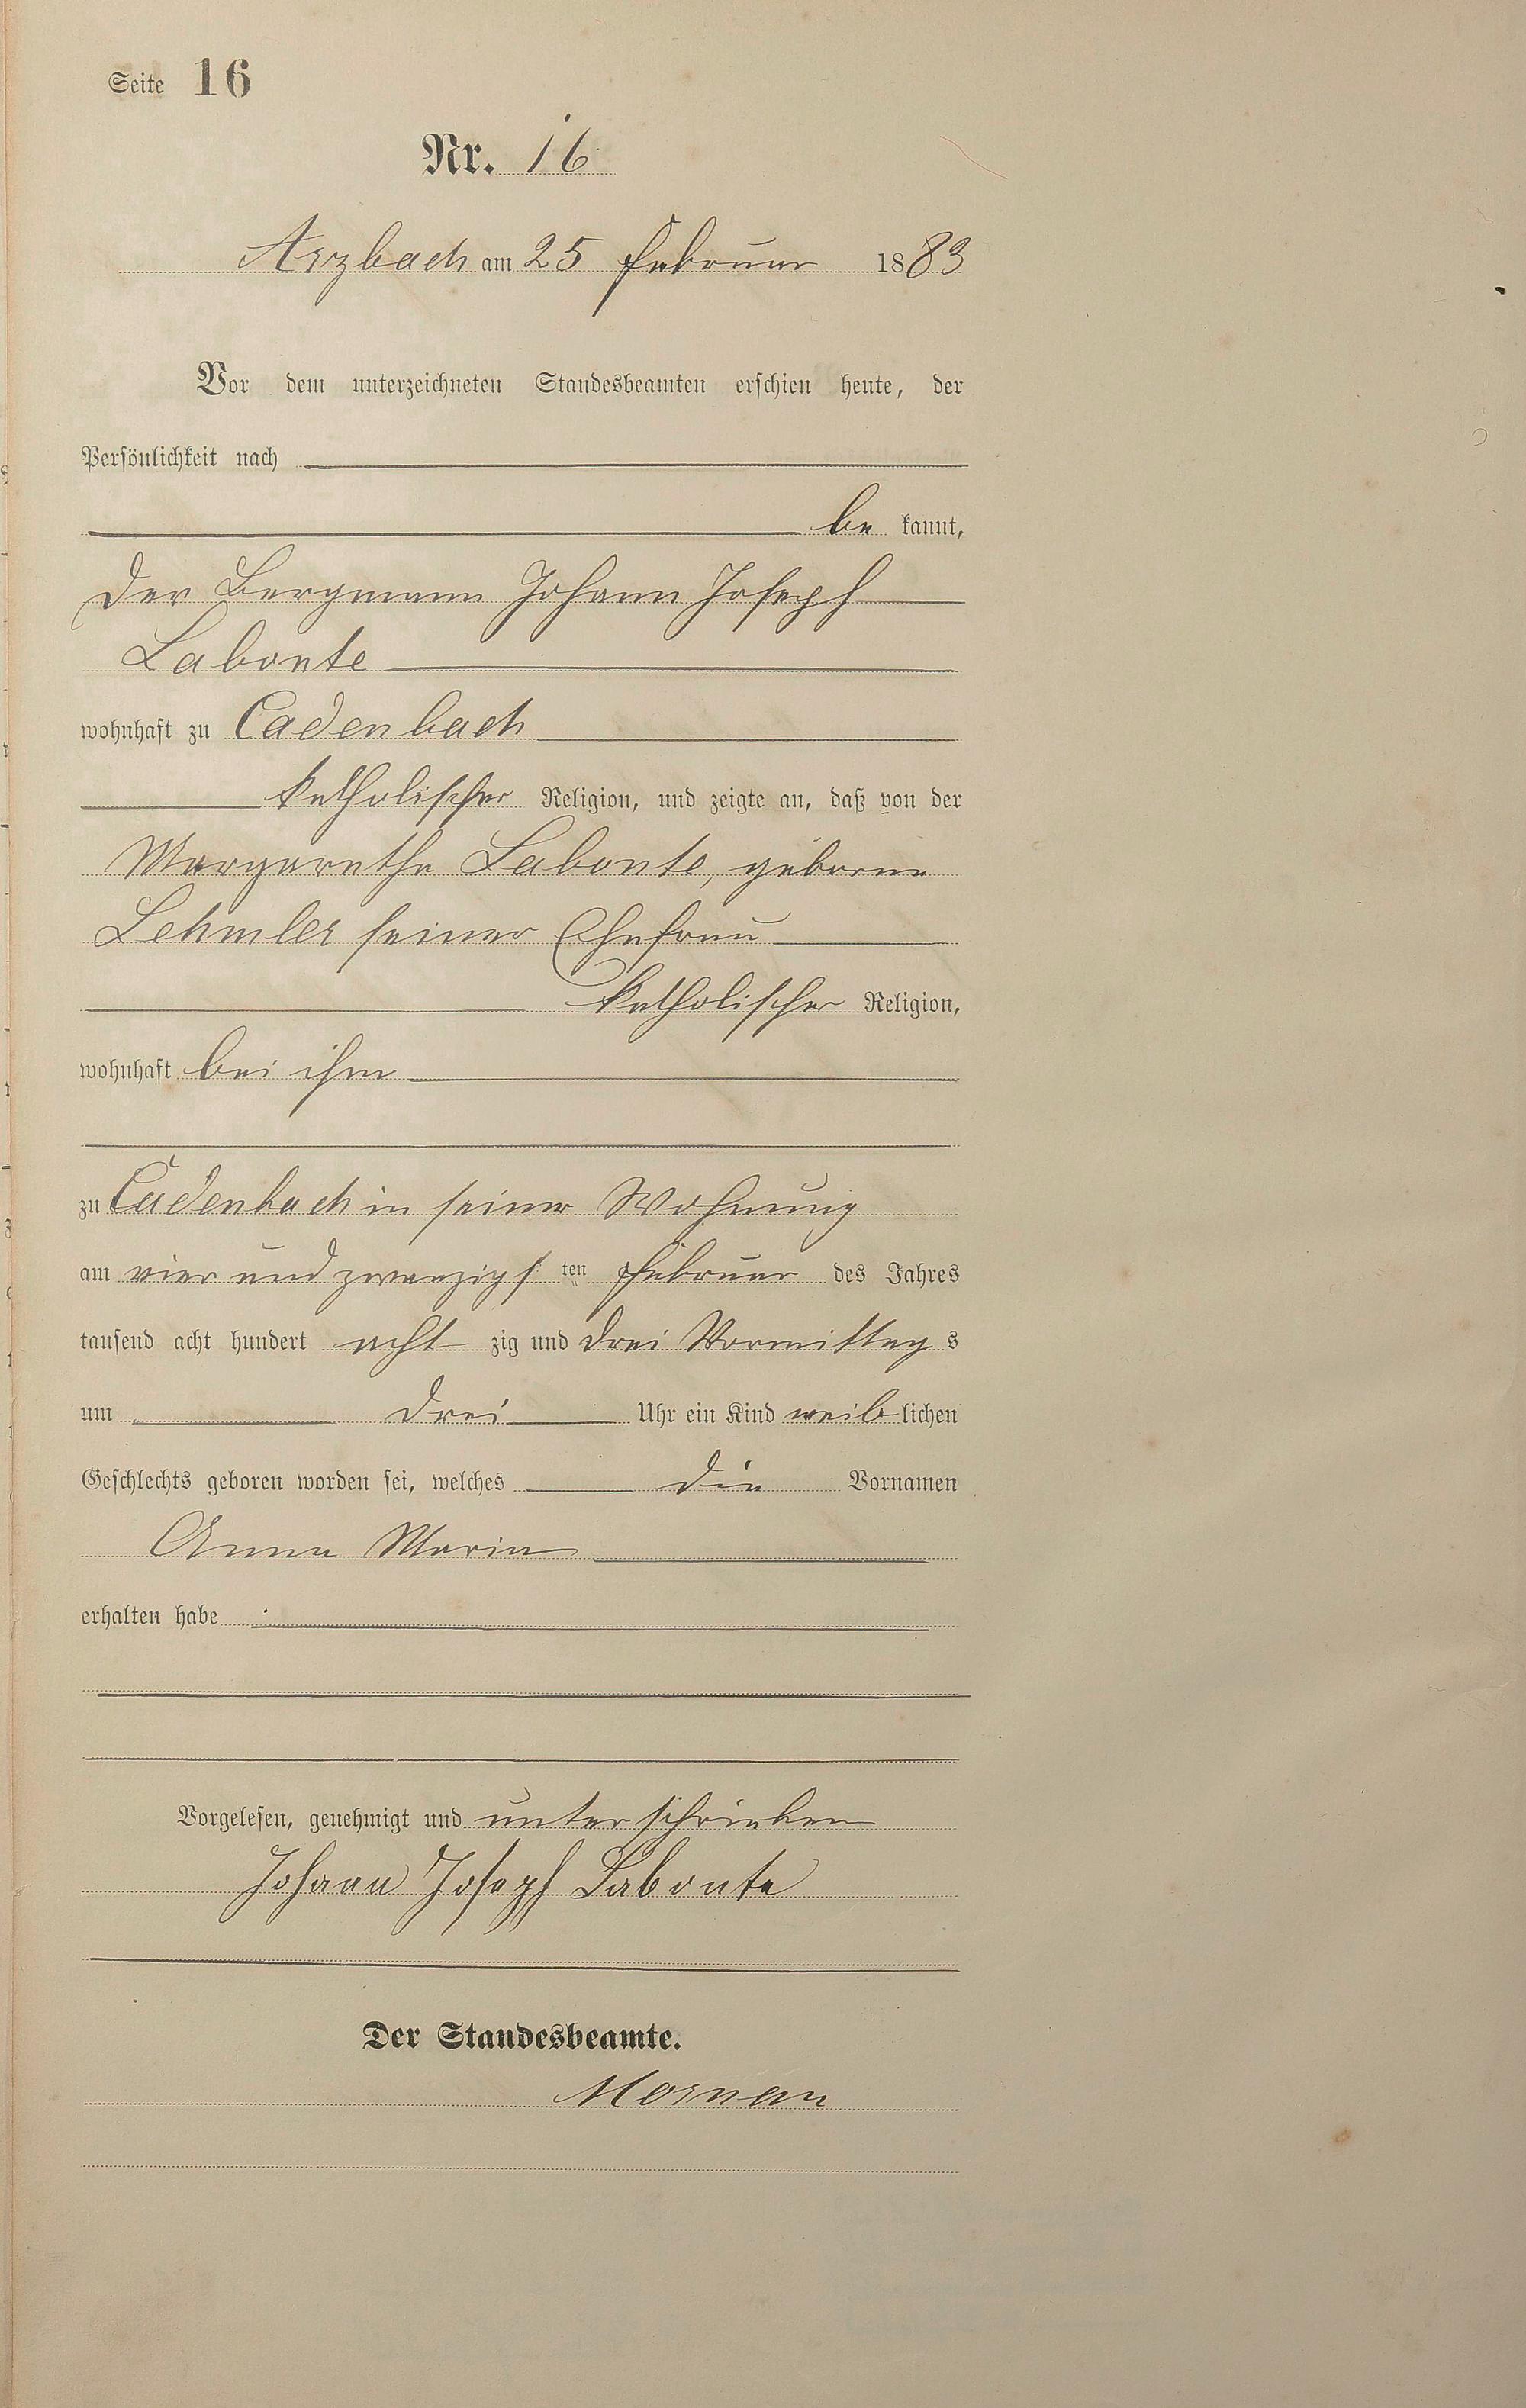 Seite 16
Nr. 16
Arzbach am 25 Februar 1883
Vor dem unterzeichneten Standesbeamten erschien heute, der
Persönlichkeit nach
be kannt,
der Bergmann Johann Joseph
Labonte
wohnhaft zu Cadenbach
katholischer Religion, und zeigte an, daß von der
Margarethe Labonte, geborne
Lehmler seiner Ehefrau
katholischer Religion,
wohnhaft bei ihm
zu Cadenbach in seiner Wohnung
am vier und zwanzigs ten Februar des Jahres
tausend acht hundert acht zig und drei Vormittag s
um drei Uhr ein Kind weib lichen
Geschlechts geboren worden sei, welches die Vornamen
Anna Maria
erhalten habe
Vorgelesen, genehmigt und unterschrieben
Johann Joseph Labonte
Der Standesbeamte.